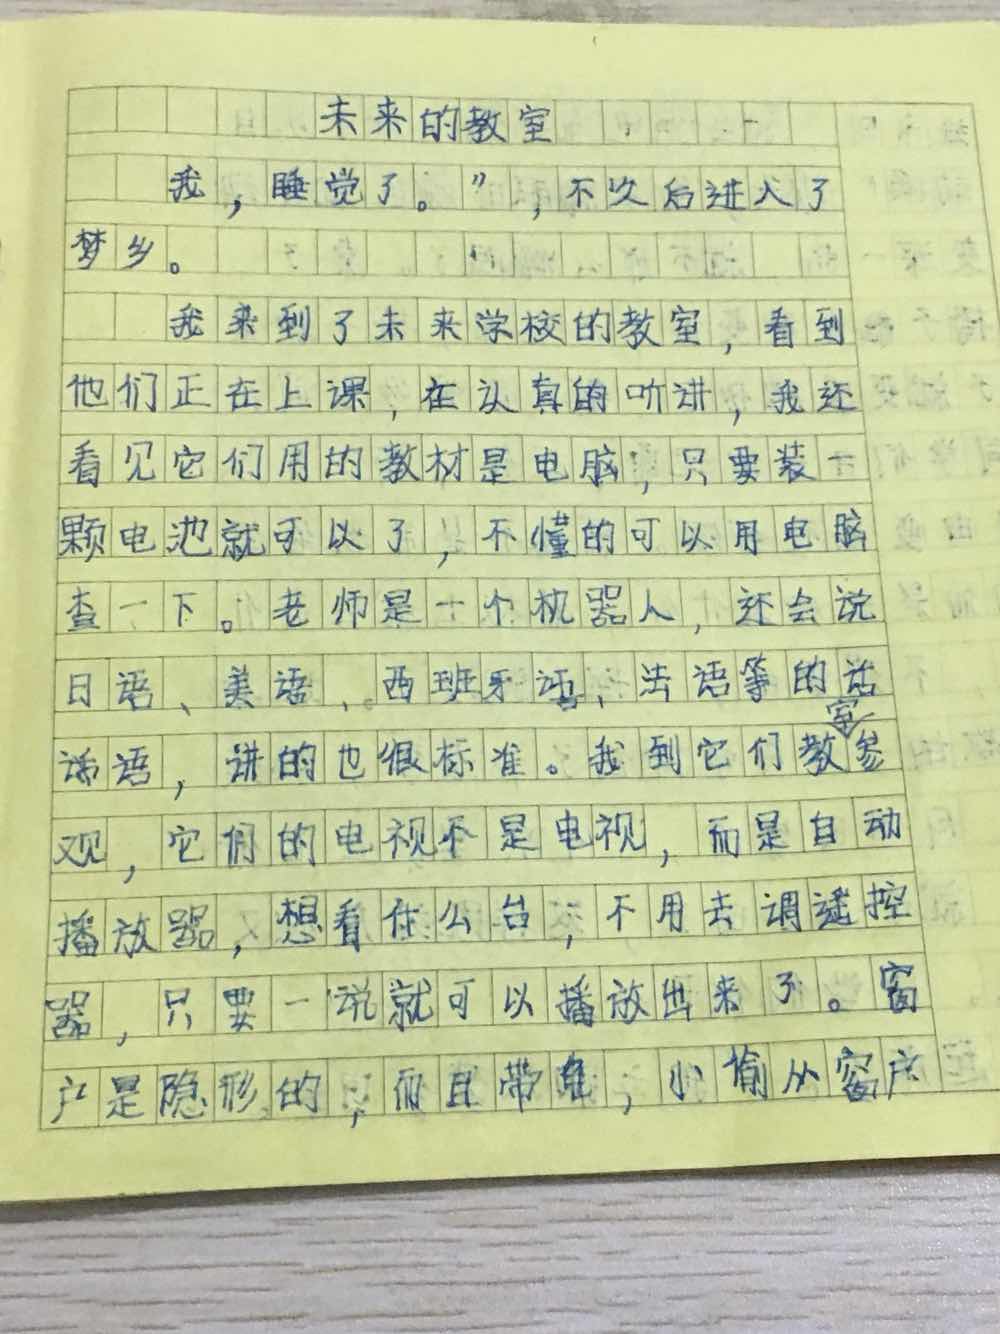 未来的教室
我，睡觉了。”，不久后进入了
梦乡。
我来到了未来学校的教室，看到
他们正在上课，在认真的听讲，我还
看见它们用的教材是电脑，只要装一
颗电池就可以了，不懂的可以用电脑
查一下。老师是一个机器人，还会说
日语、美语、西班牙语、法语等的话
话语，讲的也很标准。我到它们教室参
观，它们的电视不是电视，而是自动
播放器，想看什么台，不用去调遥控
器，只要一说就可以播放出来了。窗
户是隐形的，而且带电，小偷从窗户